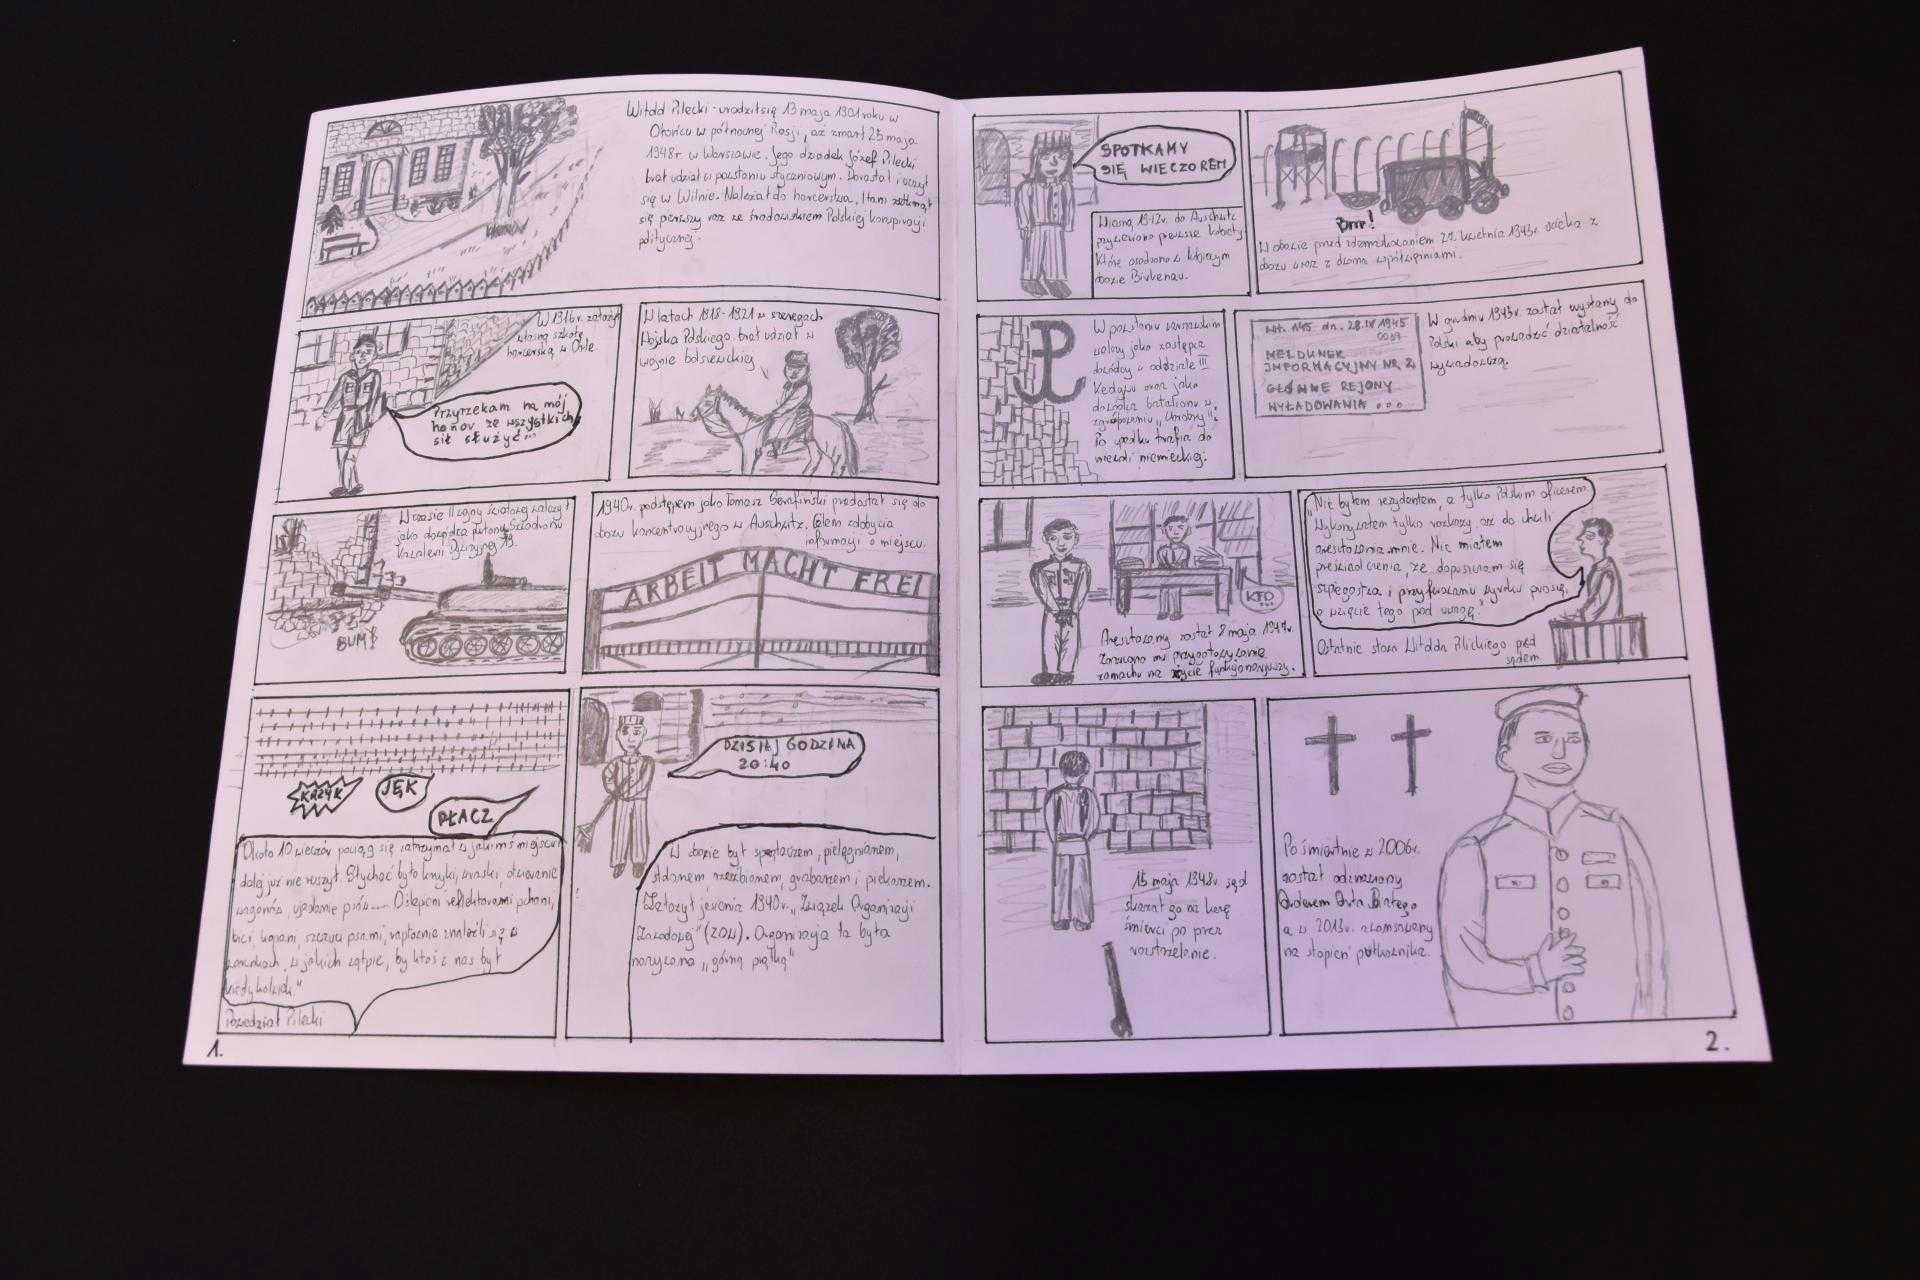 Witold Pilecki - urodził się 13 maja 1901 roku w
Ołońcu w północnej Rosji, aż zmarł 25 maja
1948r. w Warszawie. Jego dziadek Józef Pilecki
brał udział w powstaniu styczniowym. Dorastał i uczył
się w Wilnie. Należał do harcerstwa, i tam zetknął
się pierwszy raz ze środowiskiem Polskiej konspiracji
politycznej.
W 1916r. założył
własną szkołę
harcerską w Orle.
Przyrzekam na mój
honor ze wszystkich
sił służyć...
W latach 1918-1921 w szeregach
Wojska Polskiego brał udział w
wojnie bolszewickiej
W czasie II wojny światowej walczył
jako dowódca plutonu Szwadronu
Kawalerii Dywizyjnej 19.
BUM!
1940r. podstępem jako Tomasz Serafiński przedostał się do
obozu koncentracyjnego w Auschwitz. Celem zdobycia
informacji o miejscu.
ARBEIT MACHT FREI
KRZYK
JĘK
PŁACZ
Około 10 wieczór pociąg się zatrzymał w jakimś miejscu i
dalej już nie ruszył. Słychać było krzyki, wraski, otwieranie
wagonów, ujadanie psów
Oślepieni reflektorami, pchani,
bici, kopani, szczuci psami, nagle znaleźli się w
warunkach, w jakich wątpię, by ktoś z nas był
kiedykolwiek."
Powiedział Pilecki
1.
DZISIAJ GODZINA
20:40
W obozie był sprzątaczem, pielęgniarzem,
stolarzem, rzeźbiarzem, grabarzem i piekarzem.
Założył jesienią 1940r. „Związek Organizacji
Wojskowej" (ZOW). Organizacja ta była
nazywana „górną piątką"
SPOTKAMY
SIĘ WIECZOREM
Wiosną 1942r. do Auschwitz
przywieziono pierwsze kobiety
które osadzono w kobiecym
obozie Birkenau.
Brrr!
W obozie przed zdemaskowaniem 27 kwietnia 1943r. ucieka z
obozu wraz z dwoma współwięźniami.
W powstaniu warszawskim
walczy jako zastępca
dowódcy w oddziale III
Kedywu oraz jako
dowódca batalionu w
zgrupowaniu „Chrobry II".
Po upadku trafia do
niewoli niemieckiej.
Wt. 145 dn. 28.IV 1945
MELDUNEK
INFORMACYJNY NR 2
GŁÓWNE REJONY
WYŁADOWANIA ...
W grudniu 1945r. został wysłany do
Polski aby prowadzić działalność
wywiadowczą.
KTO
...
Aresztowany został 8 maja 1947r.
Zarzucano mu przygotowywanie
zamachu na życie funkcjonariuszy.
„Nie byłem rezydentem, a tylko Polskim oficerem.
Wykonywałem tylko rozkazy, aż do chwili
aresztowania mnie. Nie miałem
przeświadczenia, że dopuszczam się
szpiegostwa i przy ferowaniu wyroku proszę,
o wzięcie tego pod uwagę."
Ostatnie słowa Witolda Pileckiego przed
sądem
15 maja 1948r. sąd
skazał go na karę
śmierci po przez
rozstrzelanie.
Pośmiertnie w 2006r.
został odznaczony
Orderem Orła Białego
a w 2013r. awansowany
na stopień pułkownika.
2.